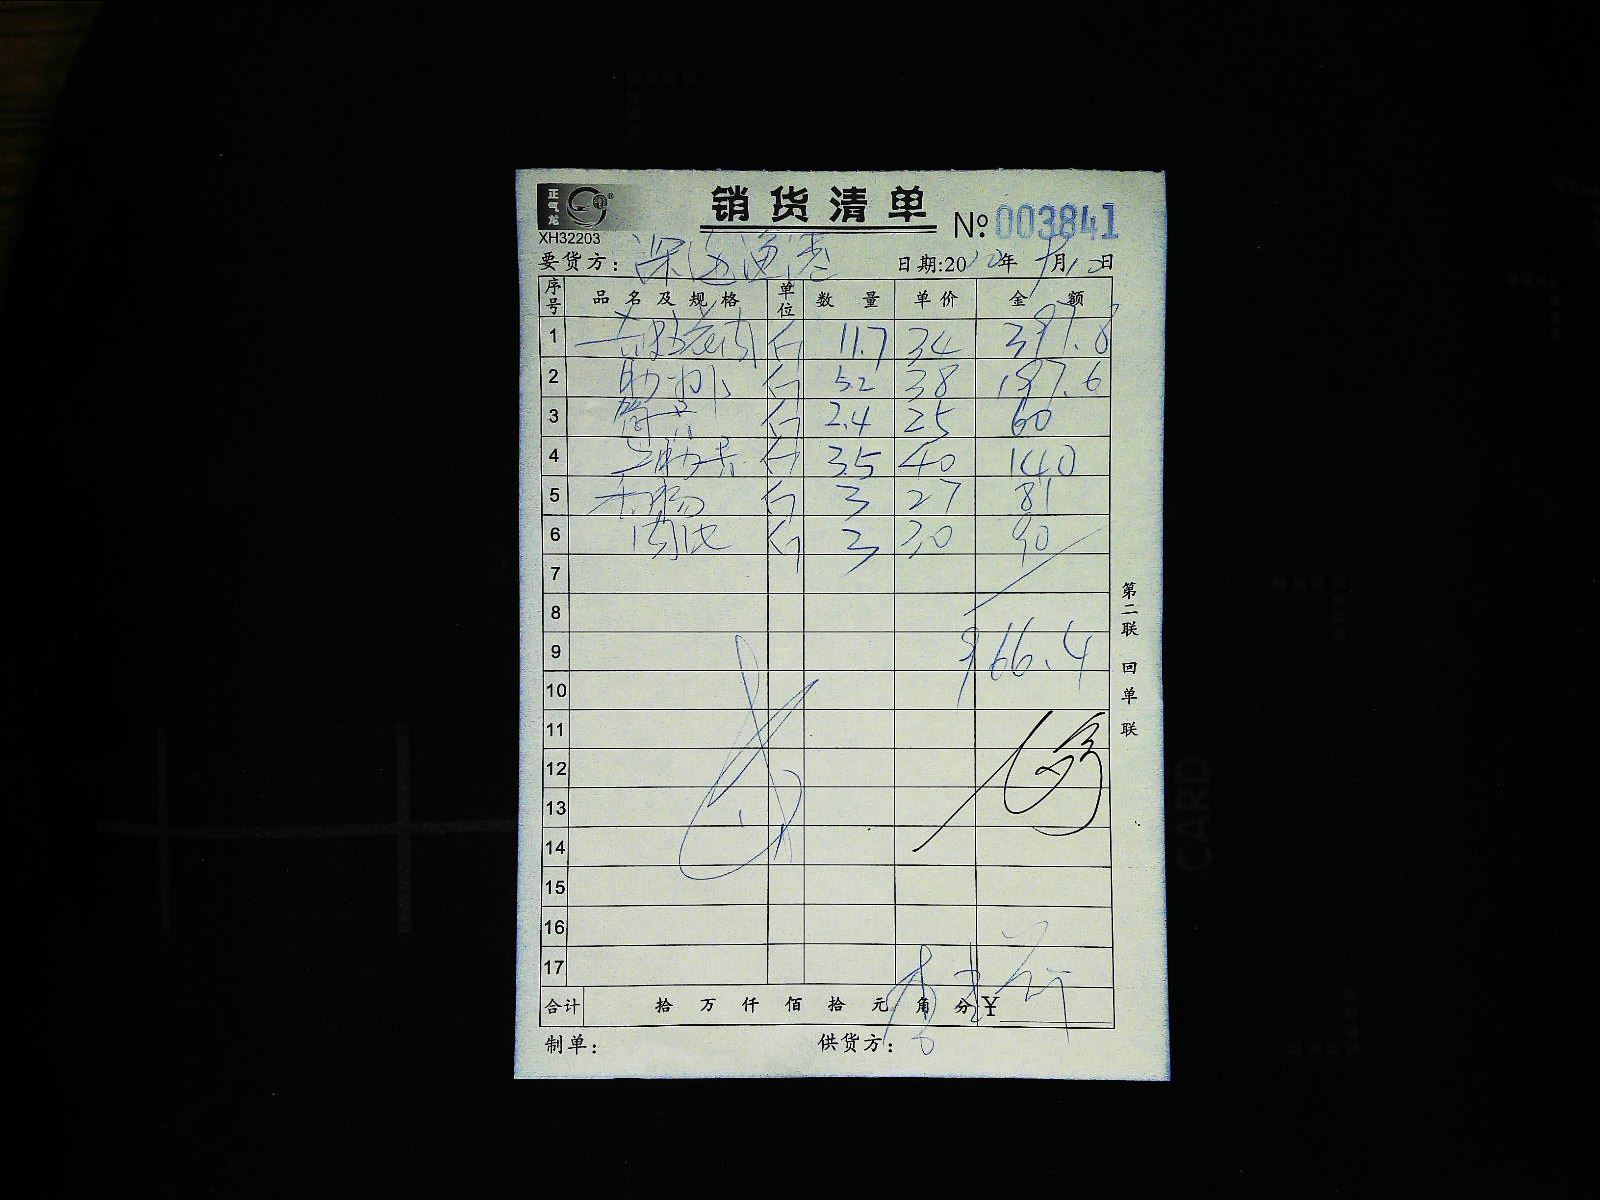 正气龙
销货清单
XH32203
№ 003841
要货方: 深海渔港 日期:20 年 月 日
序号 品名及规格 单位 数量 单价 金额
1 斤 11.7 34 397.8
2 肋排 斤 5.2 38 197.6
3 筒骨 斤 2.4 25 60
4 斤 3.5 40 140
5 斤 3 27 81
6 肉沫 斤 3 30 90
7
8
9 966.4
10
11
12
13
14
15
16
17
合计 拾 万 仟 佰 拾 元 角 分 ¥
制单: 供货方:
第二联 回单联
CARD